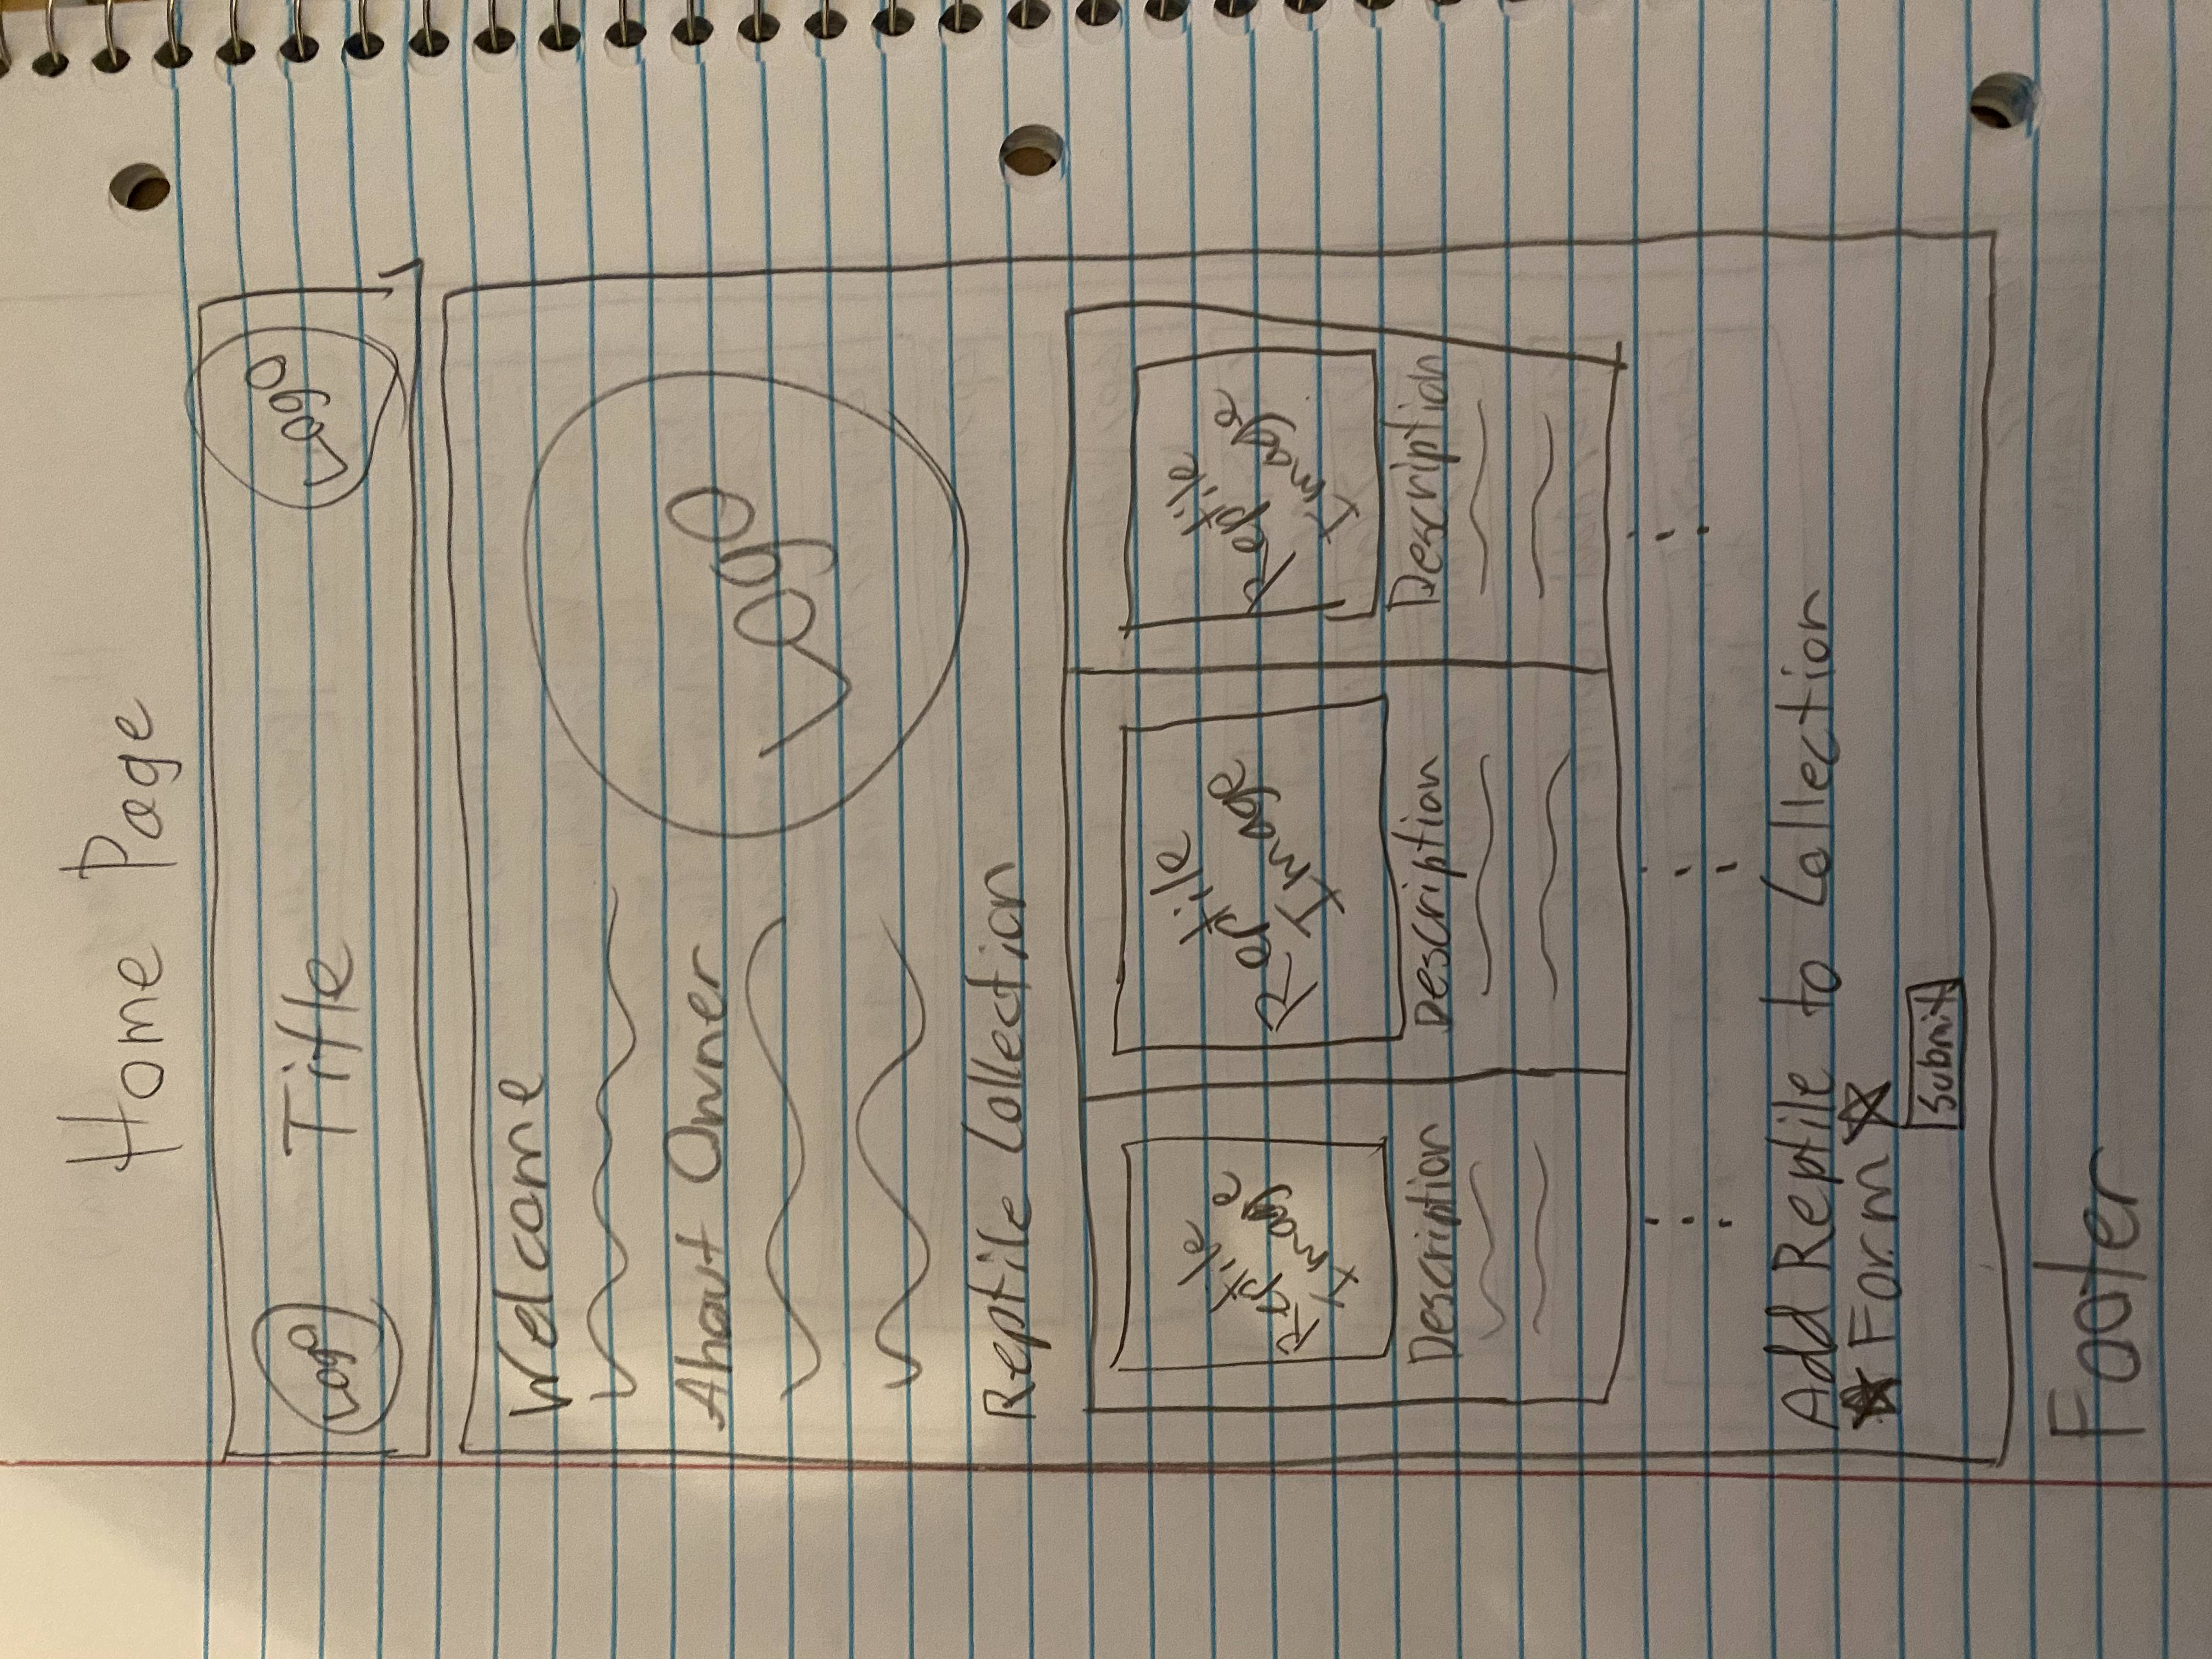 Home Page
Logo Title Logo
Welcome
About Owner
Logo
Reptile Collection
Reptile Image
Reptile Image
Reptile Image
Description Description Description
Add Reptile to Collection
Form
Submit
Footer